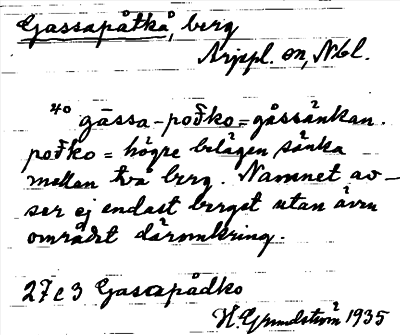 Gassapåtkå, berg
Arjepl. sn, Nbl.
40 gāssa-poďko = gåssänkan.
poďko = högre belägen sänka
mellan två berg. Namnet av-
ser ej endast berget utan även
området däromkring.
27 c 3 Gasapådko
H. Grundström 1935